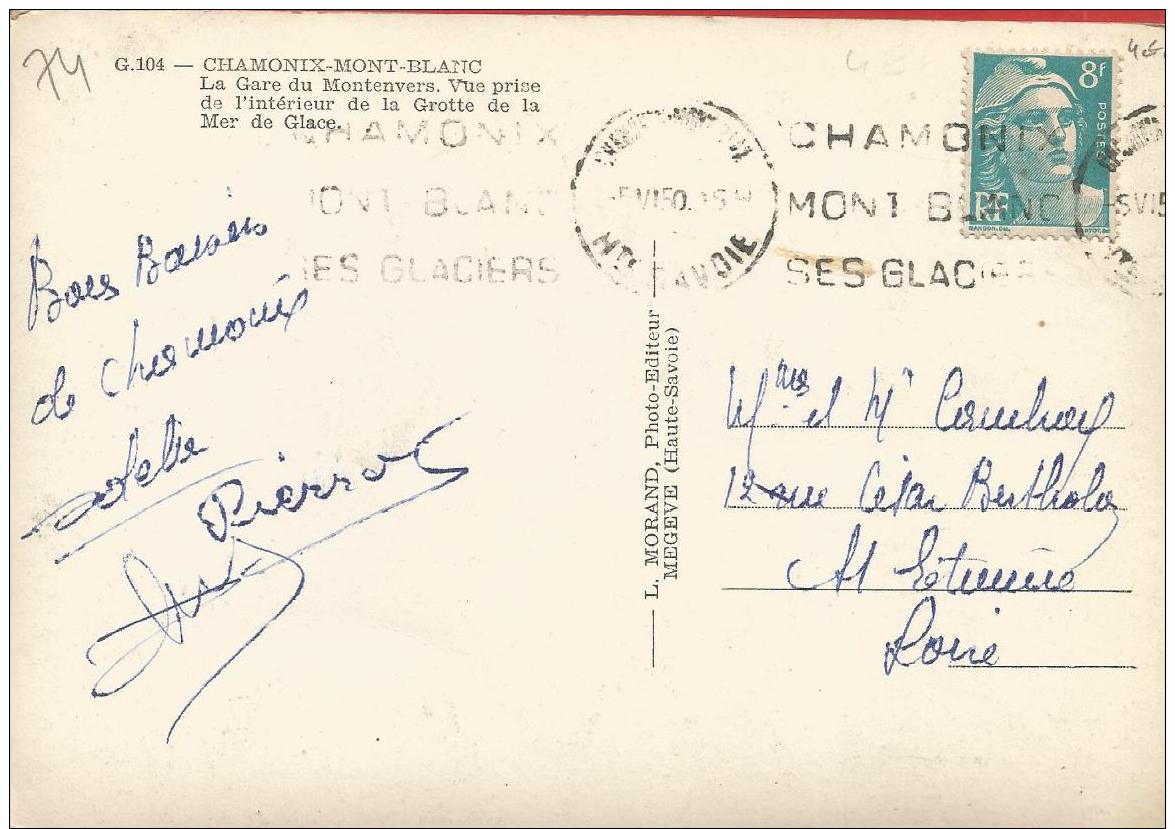 74
G.104 — CHAMONIX-MONT-BLANC
La Gare du Montenvers. Vue prise
de l'intérieur de la Grotte de la
Mer de Glace.
4€
4€
8F
POSTES
RF
CHAMONIX
MONT BLANC
SES GLACIERS
-5 VI 50
HTE SAVOIE
CHAMONIX
MONT BLANC
SES GLACIERS
-5 VI 5
Bons Baisers
de Chamonix
Pierrot
L. MORAND, Photo-Editeur
MEGEVE (Haute-Savoie)
Mme et Mr
12 rue César Bertholon
St Etienne
Loire